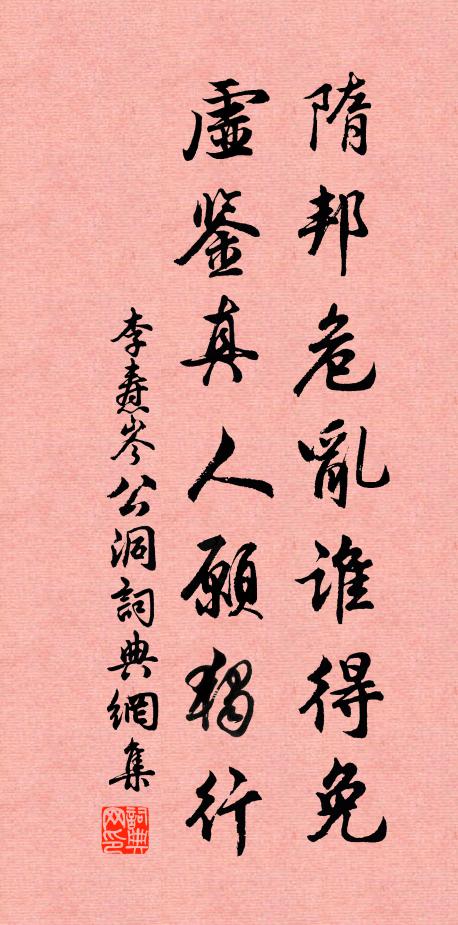 隋邦危亂谁得免
虛鉴真人願獨行
李壽岑公洞詞典網集
詞典网印